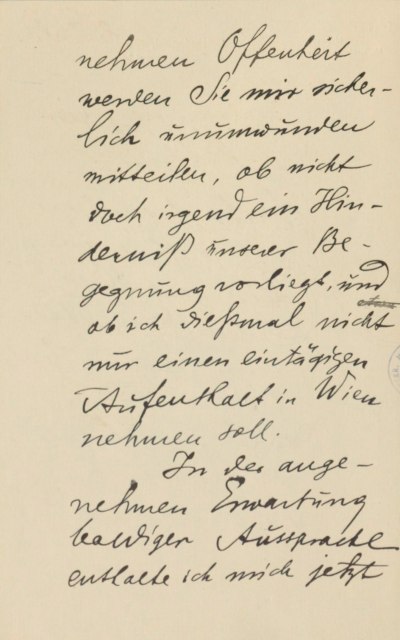 nehmen Offenheit
werden Sie mir sicher-
lich unumwunden
mitteilen, ob nicht
doch irgend ein Hin-
derniß unserer Be-
gegnung vorliegt, und
ob ich dießmal nicht
nur einen eintägigen
Aufenthalt in Wien
nehmen soll.
In der ange-
nehmen Erwartung
baldiger Aussprache
enthalte ich mich jetzt